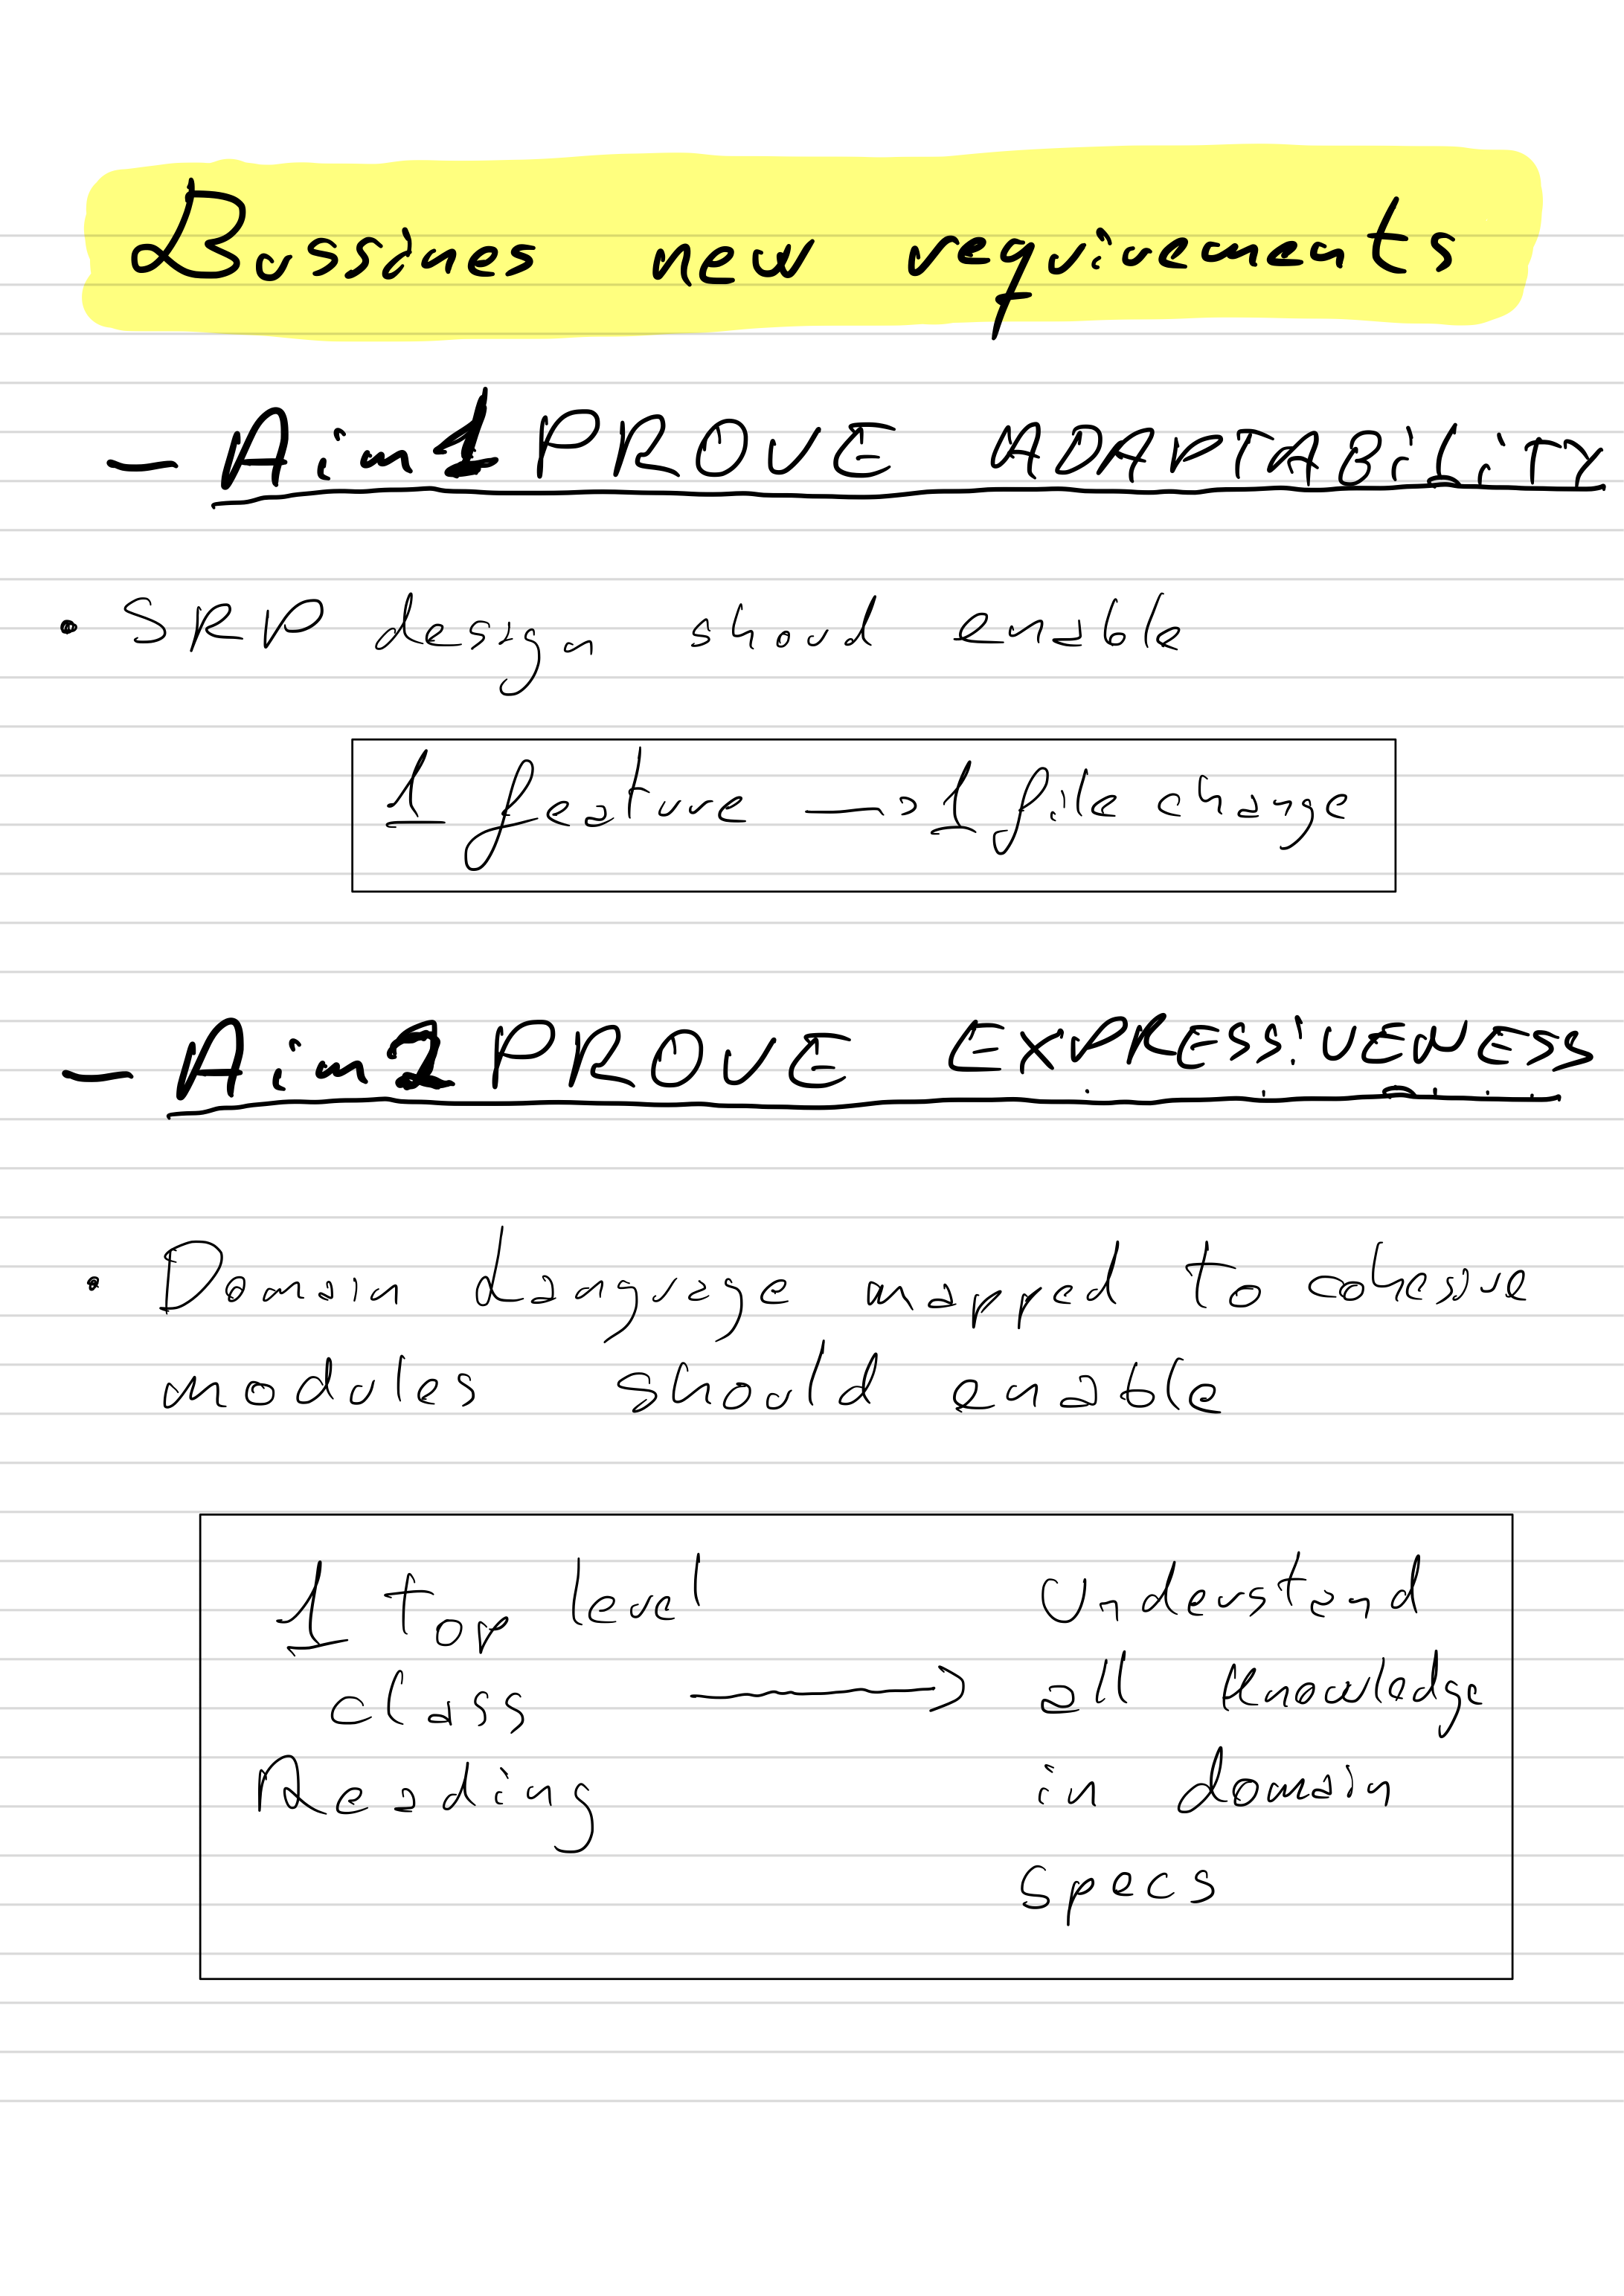 Bussines new requirements
- Aim 1 PROVE ADAPTABiLiTY
• SRP design shoud enable
1 feature → 1 file change
- Aim 2 PROVE EXPRESSiVENESS
• Domain Language mapped to cohesive
modules should enable
1 top level
class
Reading
→
Understand
all knowledge
in domain
specs